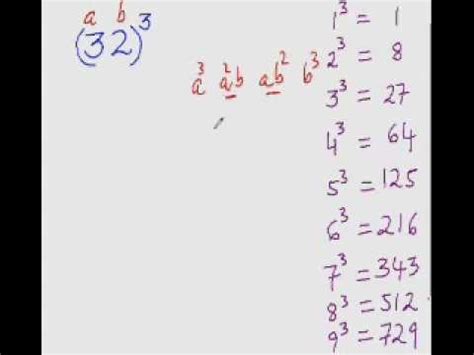 a b
(32)³
a³ a²b ab² b³
1³ = 1
2³ = 8
3³ = 27
4³ = 64
5³ = 125
6³ = 216
7³ = 343
8³ = 512
9³ = 729